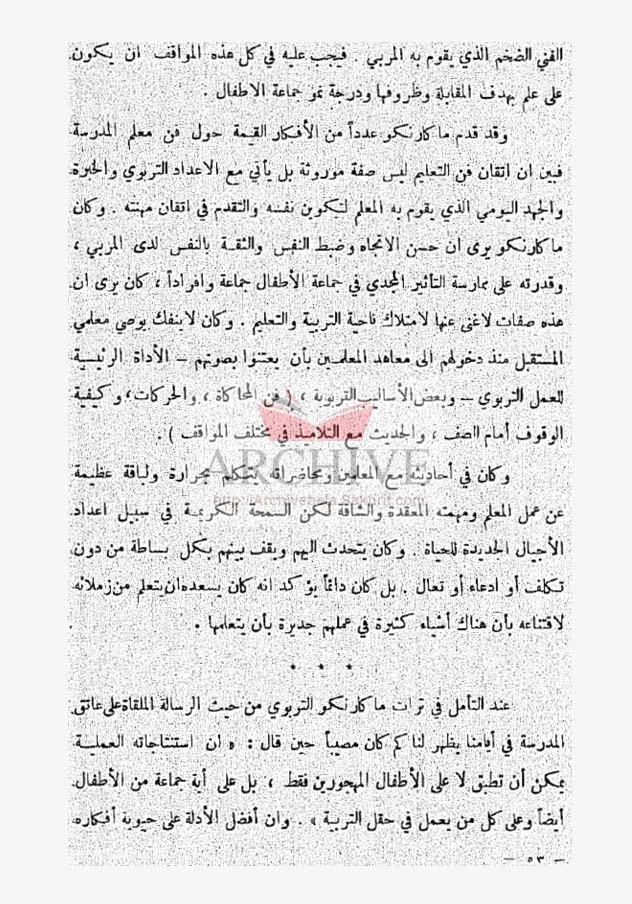 الفني الضخم الذي يقوم به المربي . فيجب عليه في كل هذه المواقف ان يكون
على علم بهدف المقابلة وظروفها ودرجة نمو جماعة الاطفال .
وقد قدم ماكارنكو عدداً من الأفكار القيمة حول فن معلم المدرسة
فبين ان اتقان فن التعليم ليس صفة موروثة بل يأتي مع الاعداد التربوي والخبرة
والجهد اليومي الذي يقوم به المعلم لتكوين نفسه والتقدم في اتقان مهنته . وكان
ماكارنكو يرى ان حسن الاتجاه وضبط النفس والثقة بالنفس لدى المربي ،
وقدرته على ممارسة التأثير المجدي في جماعة الأطفال جماعة وافراداً ، كان يرى ان
هذه صفات لاغنى عنها لامتلاك ناحية التربية والتعليم . وكان لاينفك يوصي معلمي
المستقبل منذ دخولهم الى معاهد المعلمين بأن يعتنوا بصوتهم – الأداة الرئيسية
للعمل التربوي – وبعض الأساليب التربوية ، ( فن المحاكاة ، والحركات ، وكيفية
الوقوف أمام الصف ، والحديث مع التلاميذ في مختلف المواقف ) .
ARCHIVE
http://Archivebeta.Sakhrit.com
وكان في أحاديثه مع المعلمين ومحاضراته يتكلم بحرارة ولباقة عظيمة
عن عمل المعلم ومهمته المعقدة والشاقة لكن السمحة الكريمة في سبيل اعداد
الأجيال الجديدة للحياة . وكان يتحدث اليهم ويقف بينهم بكل بساطة من دون
تكلف أو ادعاء أو تعال . بل كان دائماً يؤكد انه كان يسعده ان يتعلم من زملائه
لاقتناعه بأن هناك أشياء كثيرة في عملهم جديرة بأن يتعلمها .
* * *
عند التأمل في تراث ماكارنكو التربوي من حيث الرسالة الملقاة على عاتق
المدرسة في أيامنا يظهر لنا كم كان مصيباً حين قال : « ان استنتاجاته العملية
يمكن أن تطبق لا على الأطفال المهجورين فقط ، بل على أية جماعة من الأطفال
أيضاً وعلى كل من يعمل في حقل التربية » . وان أفضل الأدلة على حيوية أفكاره
– ٥٣ –